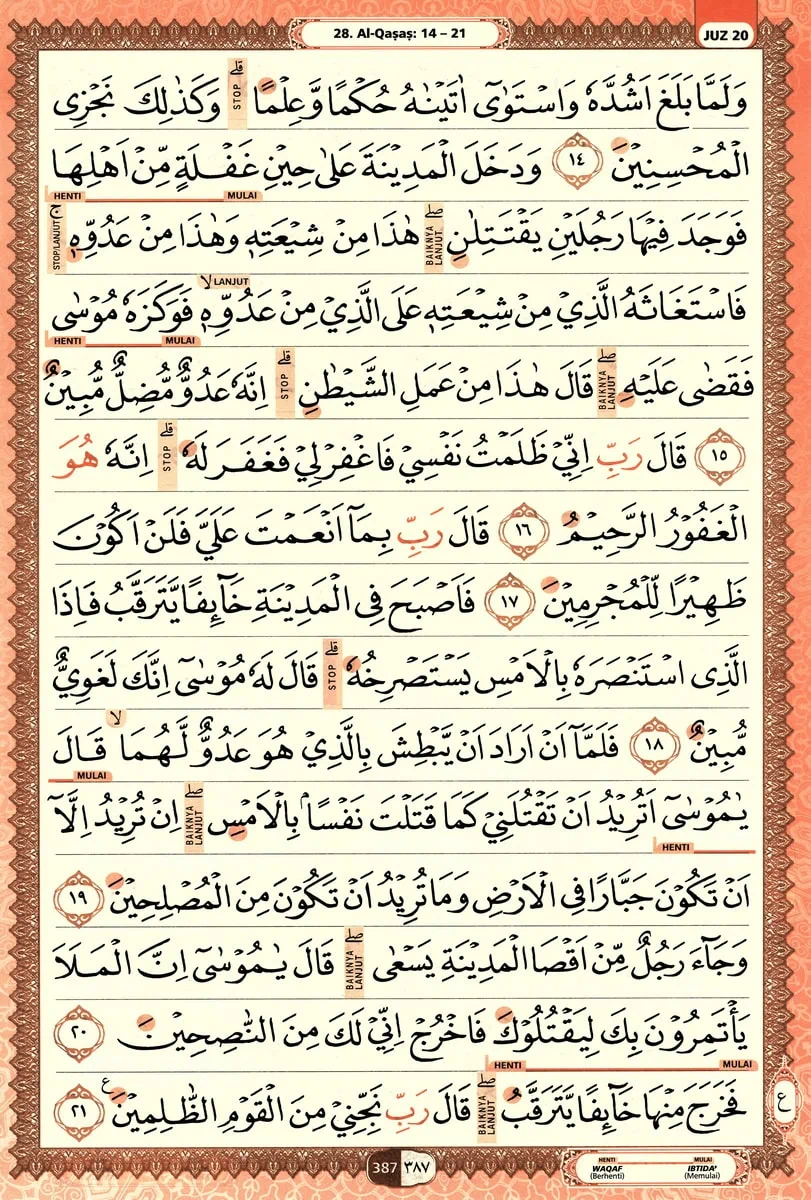 28. Al-Qaṣaṣ: 14 – 21
JUZ 20
وَلَمَّا بَلَغَ اَشُدَّهٗ وَاسْتَوٰىٓ اٰتَيْنٰهُ حُكْمًا وَّعِلْمًا ۗ STOP وَكَذٰلِكَ نَجْزِى
الْمُحْسِنِيْنَ ١٤ وَدَخَلَ الْمَدِيْنَةَ عَلٰى حِيْنِ غَفْلَةٍ مِّنْ اَهْلِهَا
HENTI MULAI
فَوَجَدَ فِيْهَا رَجُلَيْنِ يَقْتَتِلٰنِ ۖ BAIKNYA LANJUT هٰذَا مِنْ شِيْعَتِهٖ وَهٰذَا مِنْ عَدُوِّهٖ ۚ STOP/LANJUT
لا LANJUT
فَاسْتَغَاثَهُ الَّذِيْ مِنْ شِيْعَتِهٖ عَلَى الَّذِيْ مِنْ عَدُوِّهٖ فَوَكَزَهٗ مُوْسٰى
HENTI MULAI
فَقَضٰى عَلَيْهِ ۖ BAIKNYA LANJUT قَالَ هٰذَا مِنْ عَمَلِ الشَّيْطٰنِ ۗ STOP اِنَّهٗ عَدُوٌّ مُّضِلٌّ مُّبِيْنٌ
١٥ قَالَ رَبِّ اِنِّيْ ظَلَمْتُ نَفْسِيْ فَاغْفِرْ لِيْ فَغَفَرَ لَهٗ ۗ STOP اِنَّهٗ هُوَ
الْغَفُوْرُ الرَّحِيْمُ ١٦ قَالَ رَبِّ بِمَآ اَنْعَمْتَ عَلَيَّ فَلَنْ اَكُوْنَ
ظَهِيْرًا لِّلْمُجْرِمِيْنَ ١٧ فَاَصْبَحَ فِى الْمَدِيْنَةِ خَاۤىِٕفًا يَّتَرَقَّبُ فَاِذَا
الَّذِى اسْتَنْصَرَهٗ بِالْاَمْسِ يَسْتَصْرِخُهٗ ۗ STOP قَالَ لَهٗ مُوْسٰىٓ اِنَّكَ لَغَوِيٌّ
مُّبِيْنٌ ١٨ فَلَمَّآ اَنْ اَرَادَ اَنْ يَّبْطِشَ بِالَّذِيْ هُوَ عَدُوٌّ لَّهُمَا ۙ قَالَ
MULAI
يٰمُوْسٰىٓ اَتُرِيْدُ اَنْ تَقْتُلَنِيْ كَمَا قَتَلْتَ نَفْسًا ۢ بِالْاَمْسِ ۖ BAIKNYA LANJUT اِنْ تُرِيْدُ اِلَّآ
HENTI
اَنْ تَكُوْنَ جَبَّارًا فِى الْاَرْضِ وَمَا تُرِيْدُ اَنْ تَكُوْنَ مِنَ الْمُصْلِحِيْنَ ١٩
وَجَاۤءَ رَجُلٌ مِّنْ اَقْصَا الْمَدِيْنَةِ يَسْعٰى ۖ BAIKNYA LANJUT قَالَ يٰمُوْسٰىٓ اِنَّ الْمَلَاَ
يَأْتَمِرُوْنَ بِكَ لِيَقْتُلُوْكَ فَاخْرُجْ اِنِّيْ لَكَ مِنَ النّٰصِحِيْنَ ٢٠
HENTI MULAI
فَخَرَجَ مِنْهَا خَاۤىِٕفًا يَّتَرَقَّبُ ۖ BAIKNYA LANJUT قَالَ رَبِّ نَجِّنِيْ مِنَ الْقَوْمِ الظّٰلِمِيْنَ ࣖ ٢١
ع
387 ٣٨٧
HENTI MULAI
WAQAF IBTIDA'
(Berhenti) (Memulai)